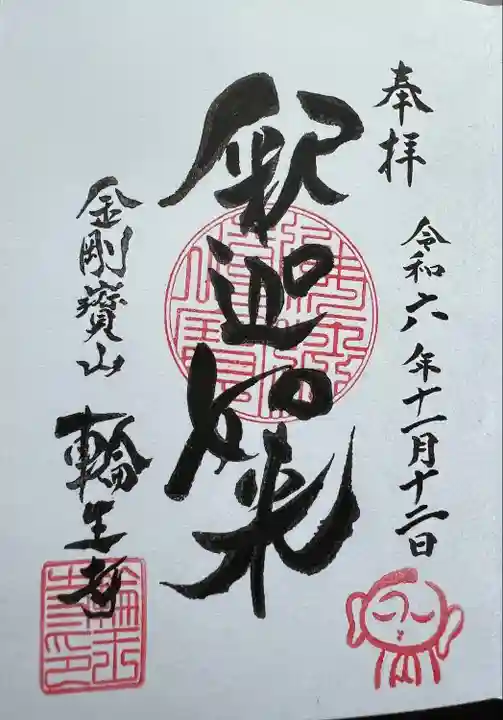 奉拝
令和六年十一月十二日
釈迦如来
金剛寳山
輪王寺